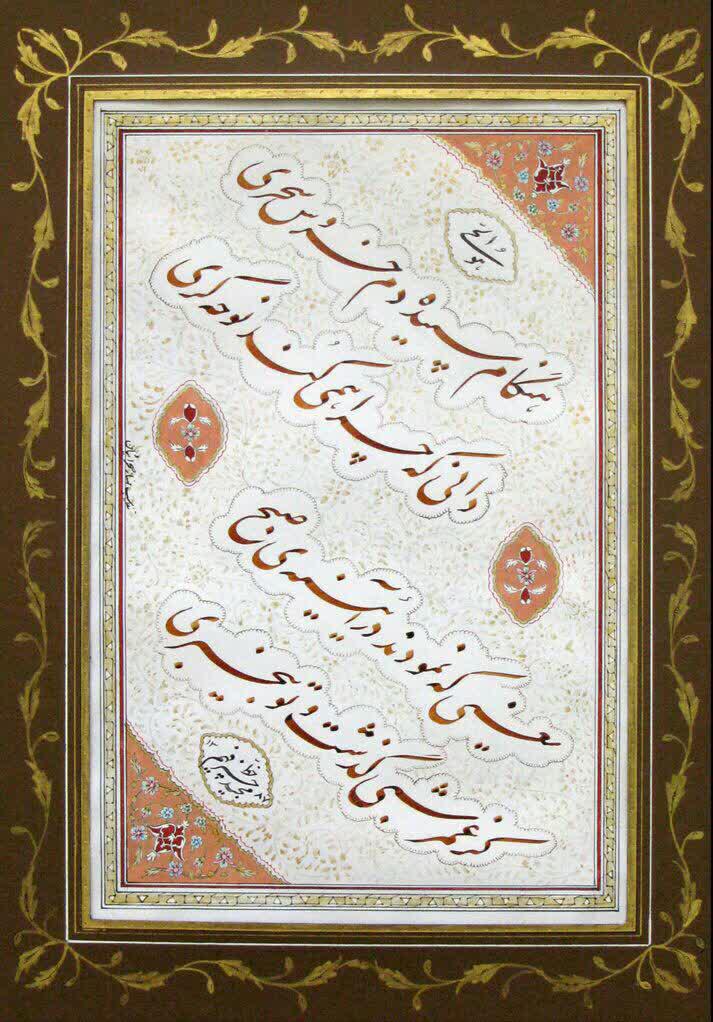 هو الحی
هنگام سپیده دم خروس سحری
دانی که چرا همی کند نوحه گری
یعنی که نمودند در آیینه ی صبح
کز عمر شبی گذشت و تو بیخبری